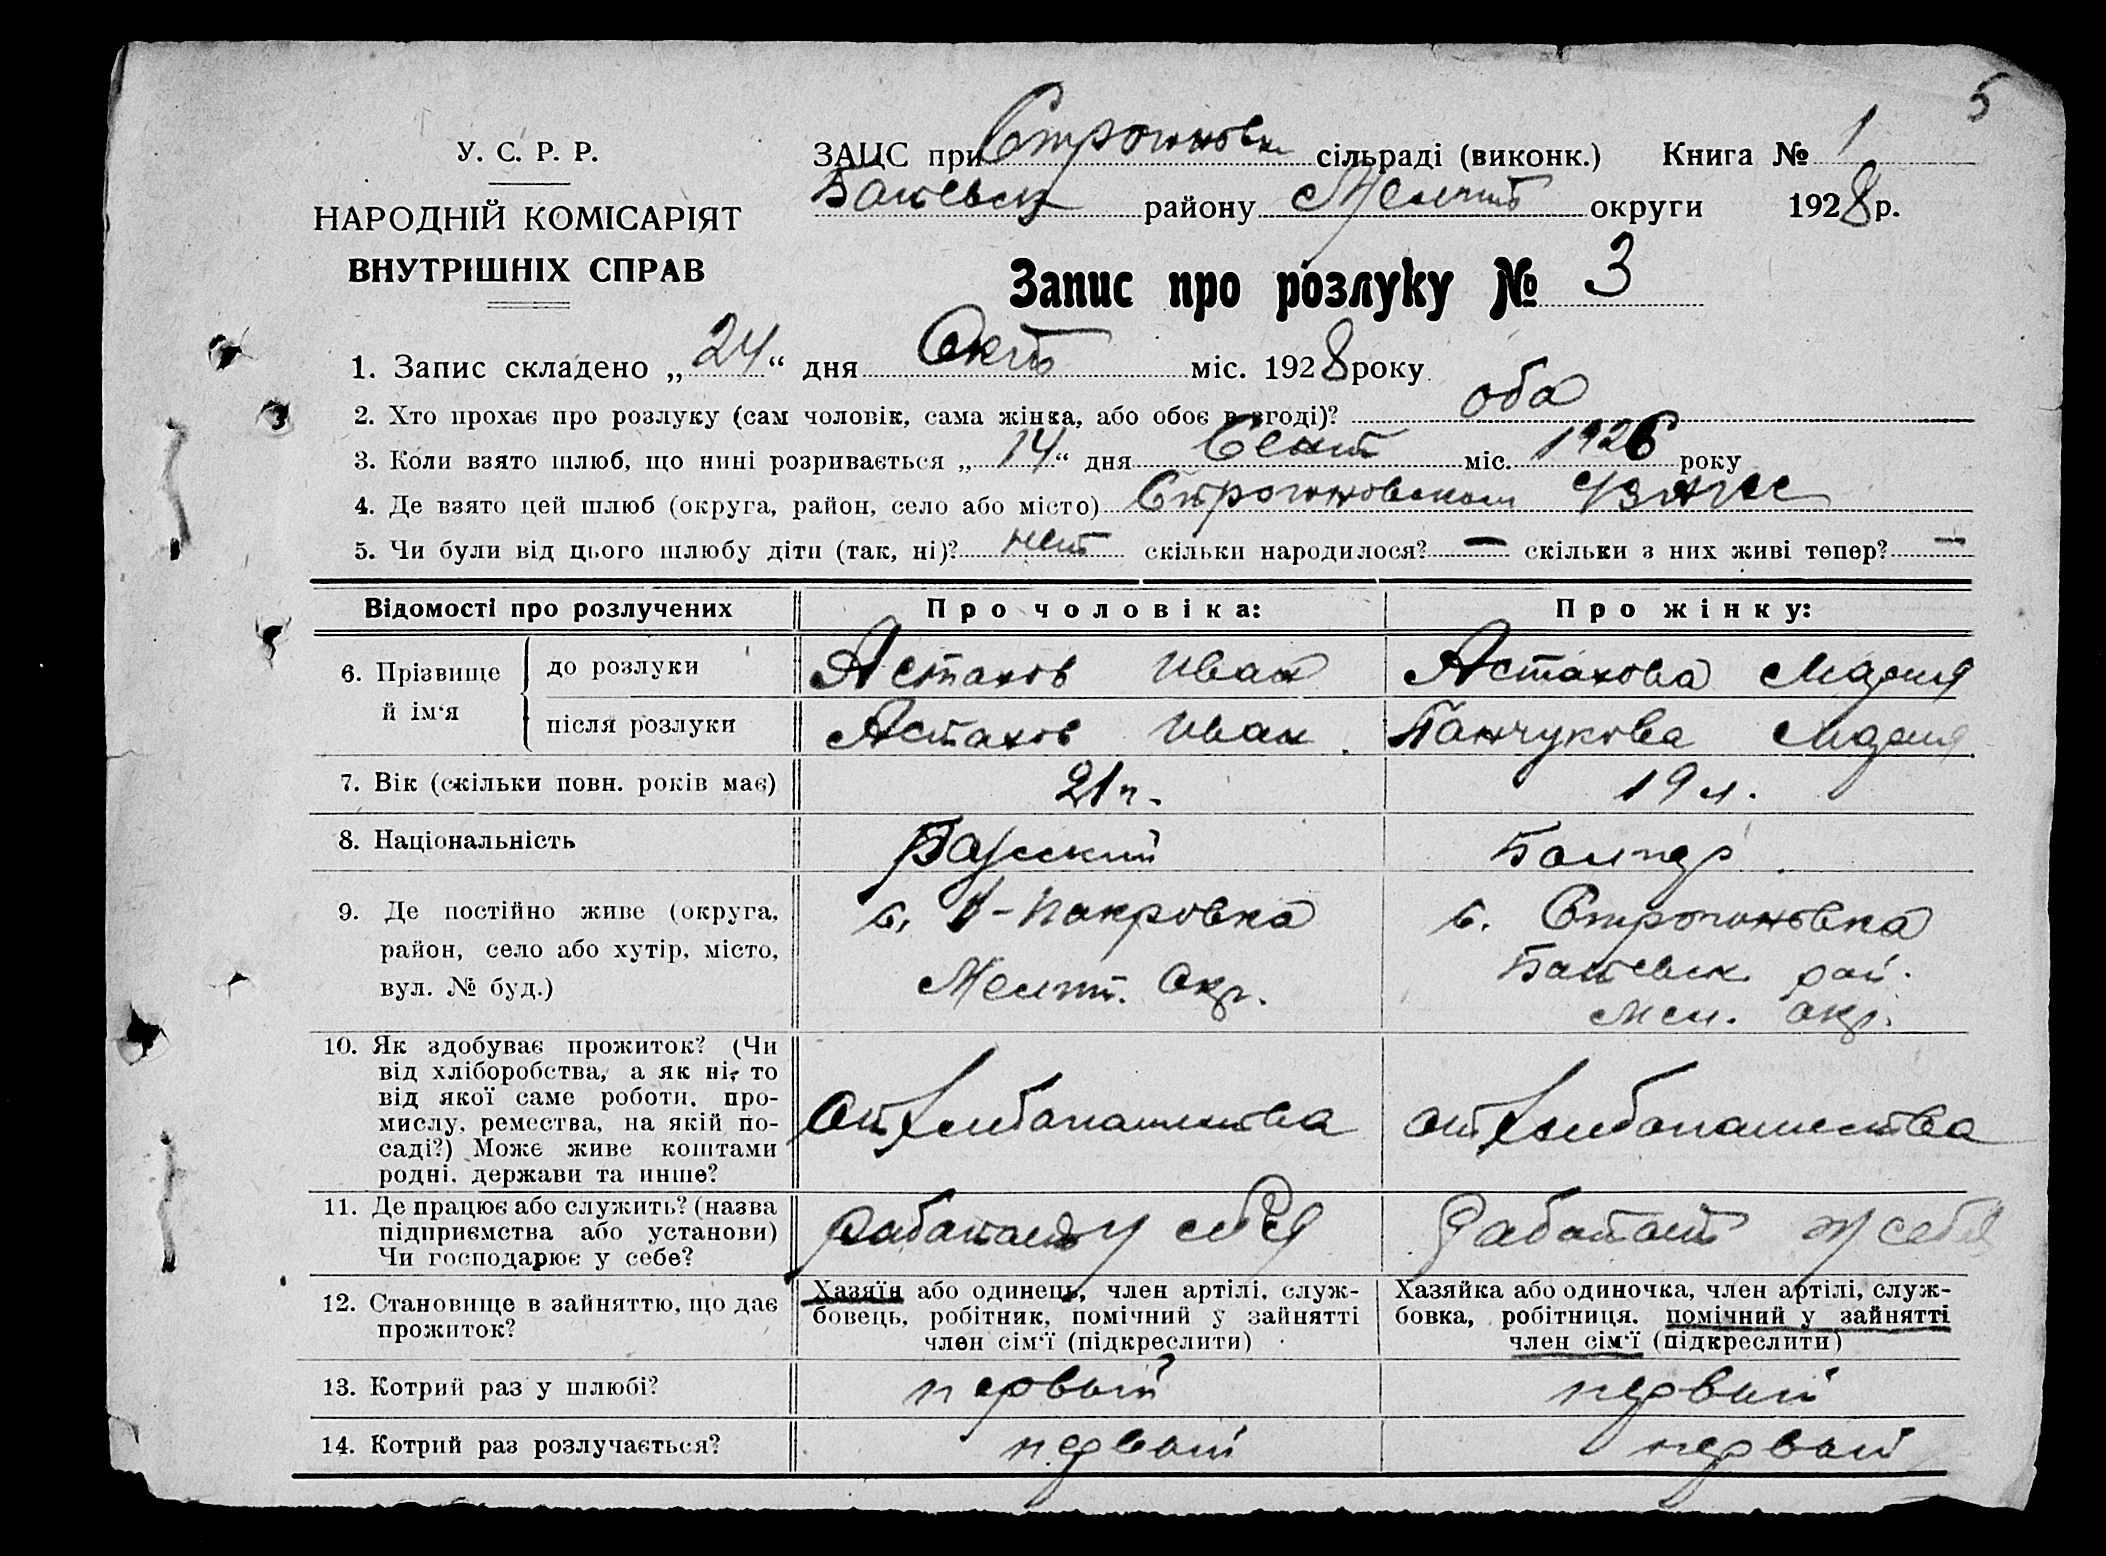 5
У. С. Р. Р.
НАРОДНІЙ КОМІСАРІЯТ
ВНУТРІШНІХ СПРАВ
ЗАЦС при Строгоновск сільраді (виконк.) Книга № 1
району Мелит округи 1928 р.
Запис про розлуку № 3
1. Запис складено „ 24 “ дня Окт міс. 1928 року
2. Хто прохає про розлуку (сам чоловік, сама жінка, або обоє в згоді)? оба
3. Коли взято шлюб, що нині розривається „ 14 “ дня Сент міс. 1926 року
4. Де взято цей шлюб (округа, район, село або місто) Строгоновском
5. Чи були від цього шлюбу діти (так, ні)? нет скільки народилося? — скільки з них живі тепер? —
Відомості про розлучених Про чоловіка: Про жінку:
6. Прізвище й ім‘я до розлуки Астахов Иван Астахова Мария
після розлуки Астахов Иван Мария
7. Вік (скільки повн. років має) 21 19 л.
8. Національність
9. Де постійно живе (округа, район, село або хутір, місто, вул. № буд.)
с. Покровка Мелит. Окр.
с. Строгоновка рай. Мел. Окр.
10. Як здобуває прожиток? (Чи
від хліборобства, а як ні, то
від якої саме роботи, про-
мислу, ремества, на якій по-
саді?) Може живе коштами
родні, держави та инше?
от хлибопашества от хлибопашества
11. Де працює або служить? (назва
підприємства або установи)
Чи господарює у себе?
работает у себя работает у себя
12. Становище в зайняттю, що дає
прожиток?
Хазяїн або одинець, член артілі, служ-
бовець, робітник, помічний у зайнятті
член сім‘ї (підкреслити)
Хазяйка або одиночка, член артілі, служ-
бовка, робітниця, помічний у зайнятті
член сім‘ї (підкреслити)
13. Котрий раз у шлюбі? первый первый
14. Котрий раз розлучається? первый первый